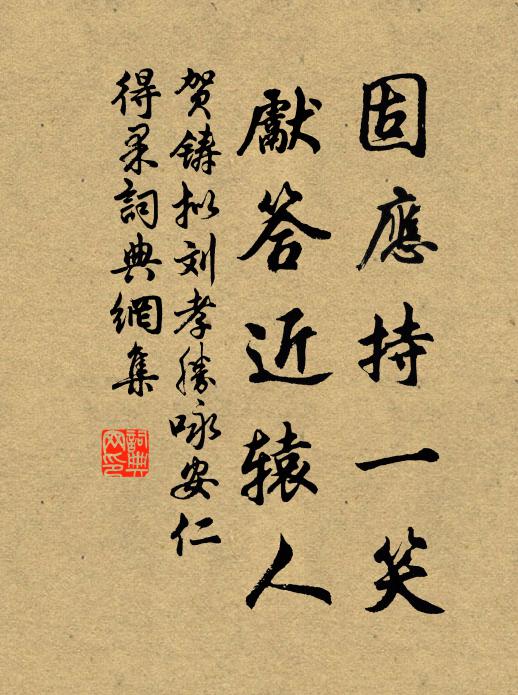 固應持一笑
獻答近辕人
贺鑄拟刘孝勝咏安仁
得果詞典網集
詞典
网印